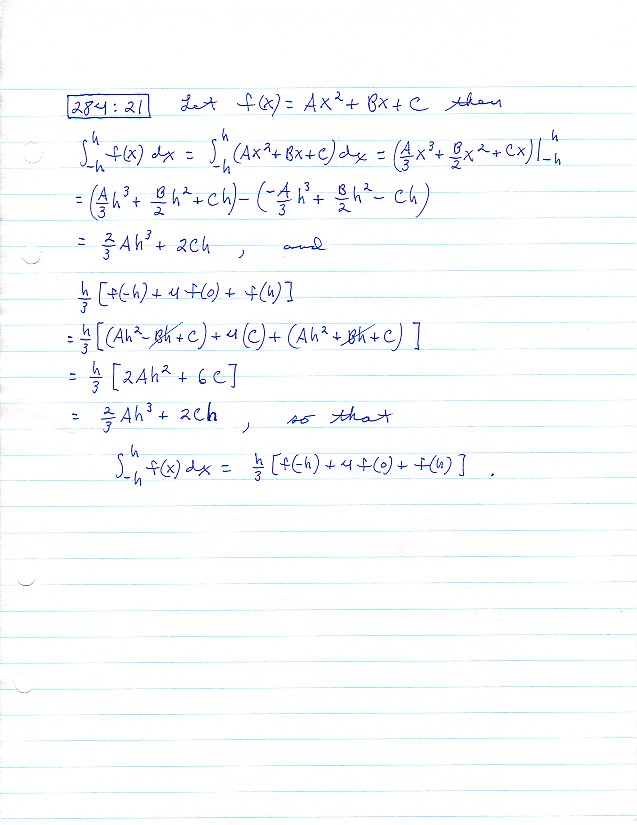 284:21 Let f(x) = Ax² + Bx + C then
∫₋ₕʰ f(x) dx = ∫₋ₕʰ (Ax² + Bx + C) dx = (A/3 x³ + B/2 x² + Cx)|₋ₕʰ
= (A/3 h³ + B/2 h² + Ch) - (-A/3 h³ + B/2 h² - Ch)
= 2/3 Ah³ + 2Ch , and
h/3 [f(-h) + 4 f(0) + f(h)]
= h/3 [(Ah² - Bh + C) + 4(C) + (Ah² + Bh + C)]
= h/3 [2Ah² + 6C]
= 2/3 Ah³ + 2Ch , so that
∫₋ₕʰ f(x) dx = h/3 [f(-h) + 4 f(0) + f(h)] .